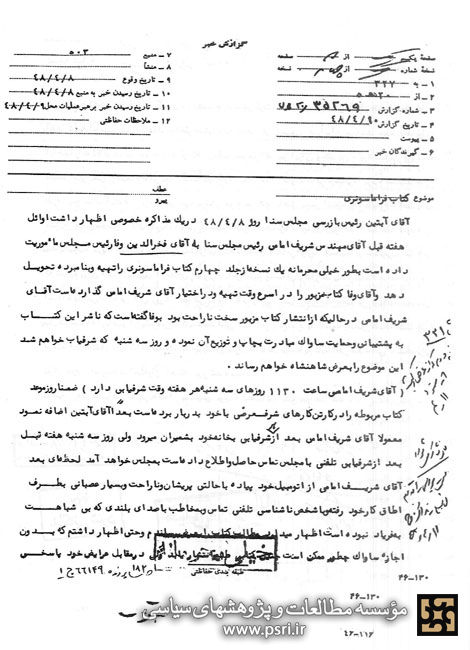 گزارش خبر
صفحه یکم از صفحه
نسخه شماره از نسخه
۱ – به ۳۲۲
۲ – از
۳ – شماره گزارش ۳۵۲۶۹
۴ – تاریخ گزارش ۴۸/۴/۹۰
۵ – پیوست
۶ – گیرندگان خبر
۷ – منبع ۵۰۳
۸ – منشأ
۹ – تاریخ وقوع ۴۸/۴/۸
۱۰ – تاریخ رسیدن خبر به منبع ۴۸/۴/۸
۱۱ – تاریخ رسیدن خبر برهبر عملیات محل ۴۸/۴/۹
۱۲ – ملاحظات حفاظتی
موضوع کتاب فراماسونری
عطف
پیرو
آقای آبتین رئیس بازرسی مجلس سنا روز ۴۸/۴/۸ در یک مذاکره خصوصی اظهار داشت اوائل
هفته قبل آقای مهندس شریف امامی رئیس مجلس سنا به آقای فخرالدین وفا رئیس مجلس ماموریت
داده است بطور خیلی محرمانه یک نسخه از جلد چهارم کتاب فراماسونری را تهیه و بنامبرده تحویل
دهد و آقای وفا کتاب مزبور را در اسرع وقت تهیه و در اختیار آقای شریف امامی گذارده است آقای
شریف امامی در حالیکه از انتشار کتاب مزبور سخت ناراحت بود بوفا گفته است که ناشر این کتاب
به پشتیبانی و حمایت ساواک مبادرت بچاپ و توزیع آن نموده و روز سه شنبه که شرفیاب خواهم شد
این موضوع را بعرض شاهنشاه خواهم رساند .
( آقای شریف امامی ساعت ۱۱۳۰ روزهای سه شنبه هر هفته وقت شرفیابی دارد ) ضمنا روز موعد
کتاب مربوطه را در کارتن کارهای شرفعرضی با خود بدربار برده است بعداً آقای آبتین اضافه نمود
معمولا آقای شریف امامی بعد از شرفیابی بخانه خود بشمیران میرود ولی روز سه شنبه هفته قبل
بعد از شرفیابی تلفنی با مجلس تماس حاصل و اطلاع داده است بمجلس خواهد آمد لحظه‌ای بعد
آقای شریف امامی از اتومبیل خود پیاده با حالتی پریشان و ناراحت و بسیار عصبانی بطرف
اطاق کار خود رفته و باشخص ناشناسی تلفنی تماس و بمخاطب با صدای بلندی که بی شباهت
به فریاد نبوده است اظهار میدارد مطالب کتاب را بعرض رساندم و حتی اظهار داشتم که بدون
اجازه ساواک چطور ممکن است چنین کتابی منتشر در مقابل عرایض خود پاسخی
خیلی محرمانه
طبقه بندی حفاظتی
۴۶-۱۳۰
۴۶-۱۳۰
۴۶-۱۱۶
مؤسسه مطالعات و پژوهشهای سیاسی
www.psri.ir